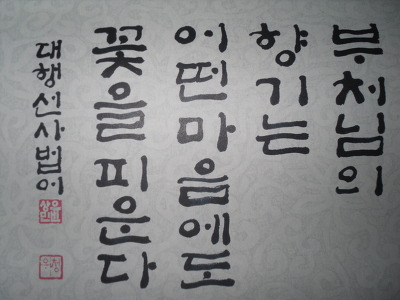 부처님의
향기는
어떤마음에도
꽃을피운다
대행선사법어